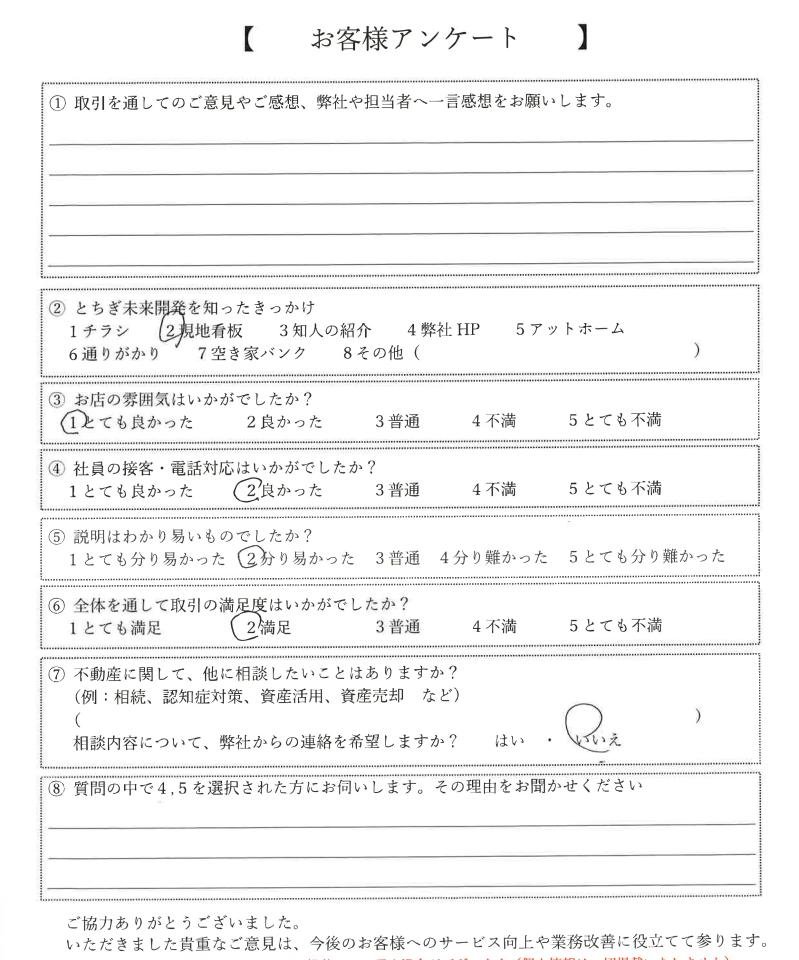 【　　お客様アンケート　　】
① 取引を通してのご意見やご感想、弊社や担当者へ一言感想をお願いします。
② とちぎ未来開発を知ったきっかけ
1チラシ　2現地看板　3知人の紹介　4弊社 HP　5アットホーム
6通りがかり　7空き家バンク　8その他（　　）
③ お店の雰囲気はいかがでしたか？
1とても良かった　2良かった　3普通　4不満　5とても不満
④ 社員の接客・電話対応はいかがでしたか？
1とても良かった　2良かった　3普通　4不満　5とても不満
⑤ 説明はわかり易いものでしたか？
1とても分り易かった　2分り易かった　3普通　4分り難かった　5とても分り難かった
⑥ 全体を通して取引の満足度はいかがでしたか？
1とても満足　2満足　3普通　4不満　5とても不満
⑦ 不動産に関して、他に相談したいことはありますか？
（例：相続、認知症対策、資産活用、資産売却　など）
（　　）
相談内容について、弊社からの連絡を希望しますか？　はい　・　いいえ
⑧ 質問の中で4,5を選択された方にお伺いします。その理由をお聞かせください
ご協力ありがとうございました。
いただきました貴重なご意見は、今後のお客様へのサービス向上や業務改善に役立てて参ります。